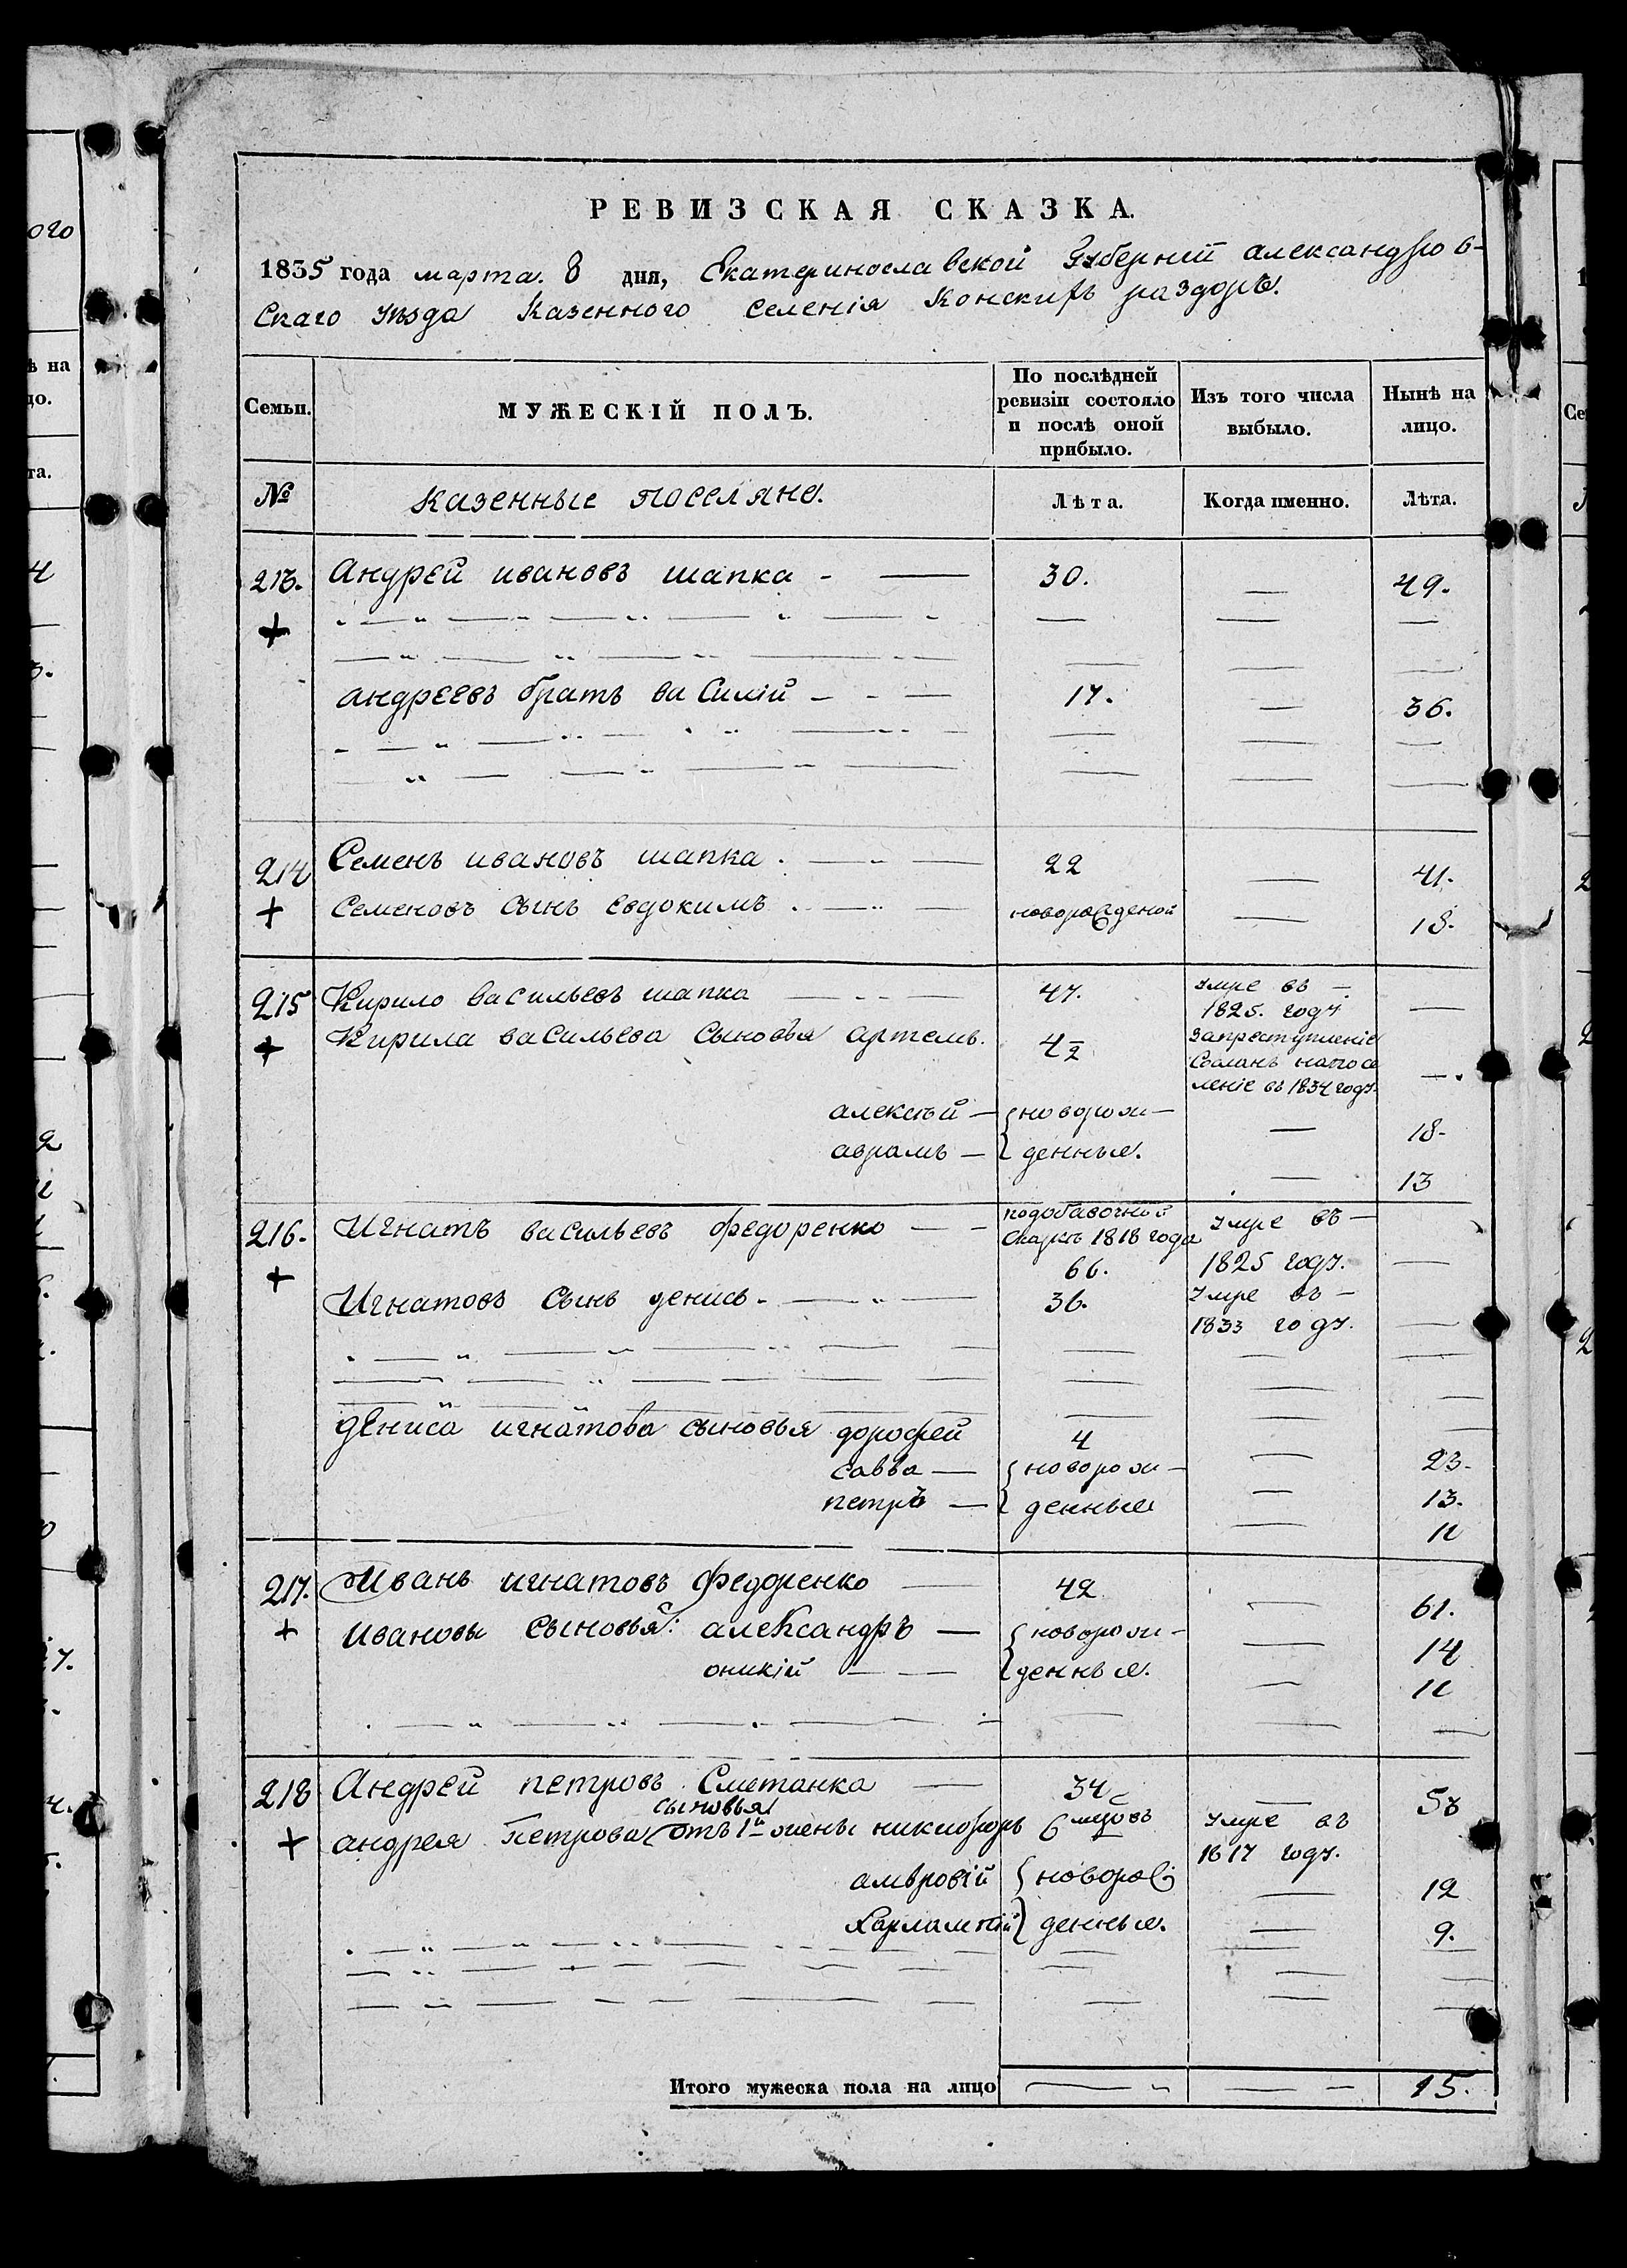 РЕВИЗСКАЯ СКАЗКА.
1835 года марта. 8 дня, Екатериносла вской Губерніи александров-
скаго уѣзда Казенного селенія Конскихъ раздоръ.
Семьи.
МУЖЕСКІЙ ПОЛЪ.
По послѣдней
ревизіи состояло
и послѣ оной
прибыло.
Изъ того числа
выбыло.
Нынѣ на
лицо.
№
казенные поселяне.
Лѣта.
Когда именно.
Лѣта.
213. Андрей ивановъ шапка 30. 49.
андреевъ братъ василій 17. 36.
214 Семенъ ивановъ шапка. 22 41.
семеновъ сынъ евдокимъ. новорожденой 18.
215 Кирило васильевъ шапка 47. Умре въ
1825. году
Кирила васильева сыновья артемъ. 4½ Запреступленіе
Сосланъ напосе
леніе въ 1834 году.
алексѣй новорож- 18.
аврамъ денные. 13
216. Игнатъ васильевъ федоренко подобавочной Умре въ
Скаркѣ 1818 года
66. 1825 году.
Игнатовъ сынъ денисъ. 36. Умре въ
1833 году.
дениса игнатова сыновья дорофей 4 23.
савва новорож- 13.
петръ денные 11
217. Иванъ игнатовъ федоренко 42 61.
ивановы сыновья: александръ новорож- 14
оникій денные. 11
218 Андрей петровъ Сметанка 34 53
сыновья
андрея петрова отъ 1й жены никифоръ 6 мцовъ Умре въ
1817 году.
амвросій новорож 12
Харлампій денные. 9.
Итого мужеска пола на лицо 15.